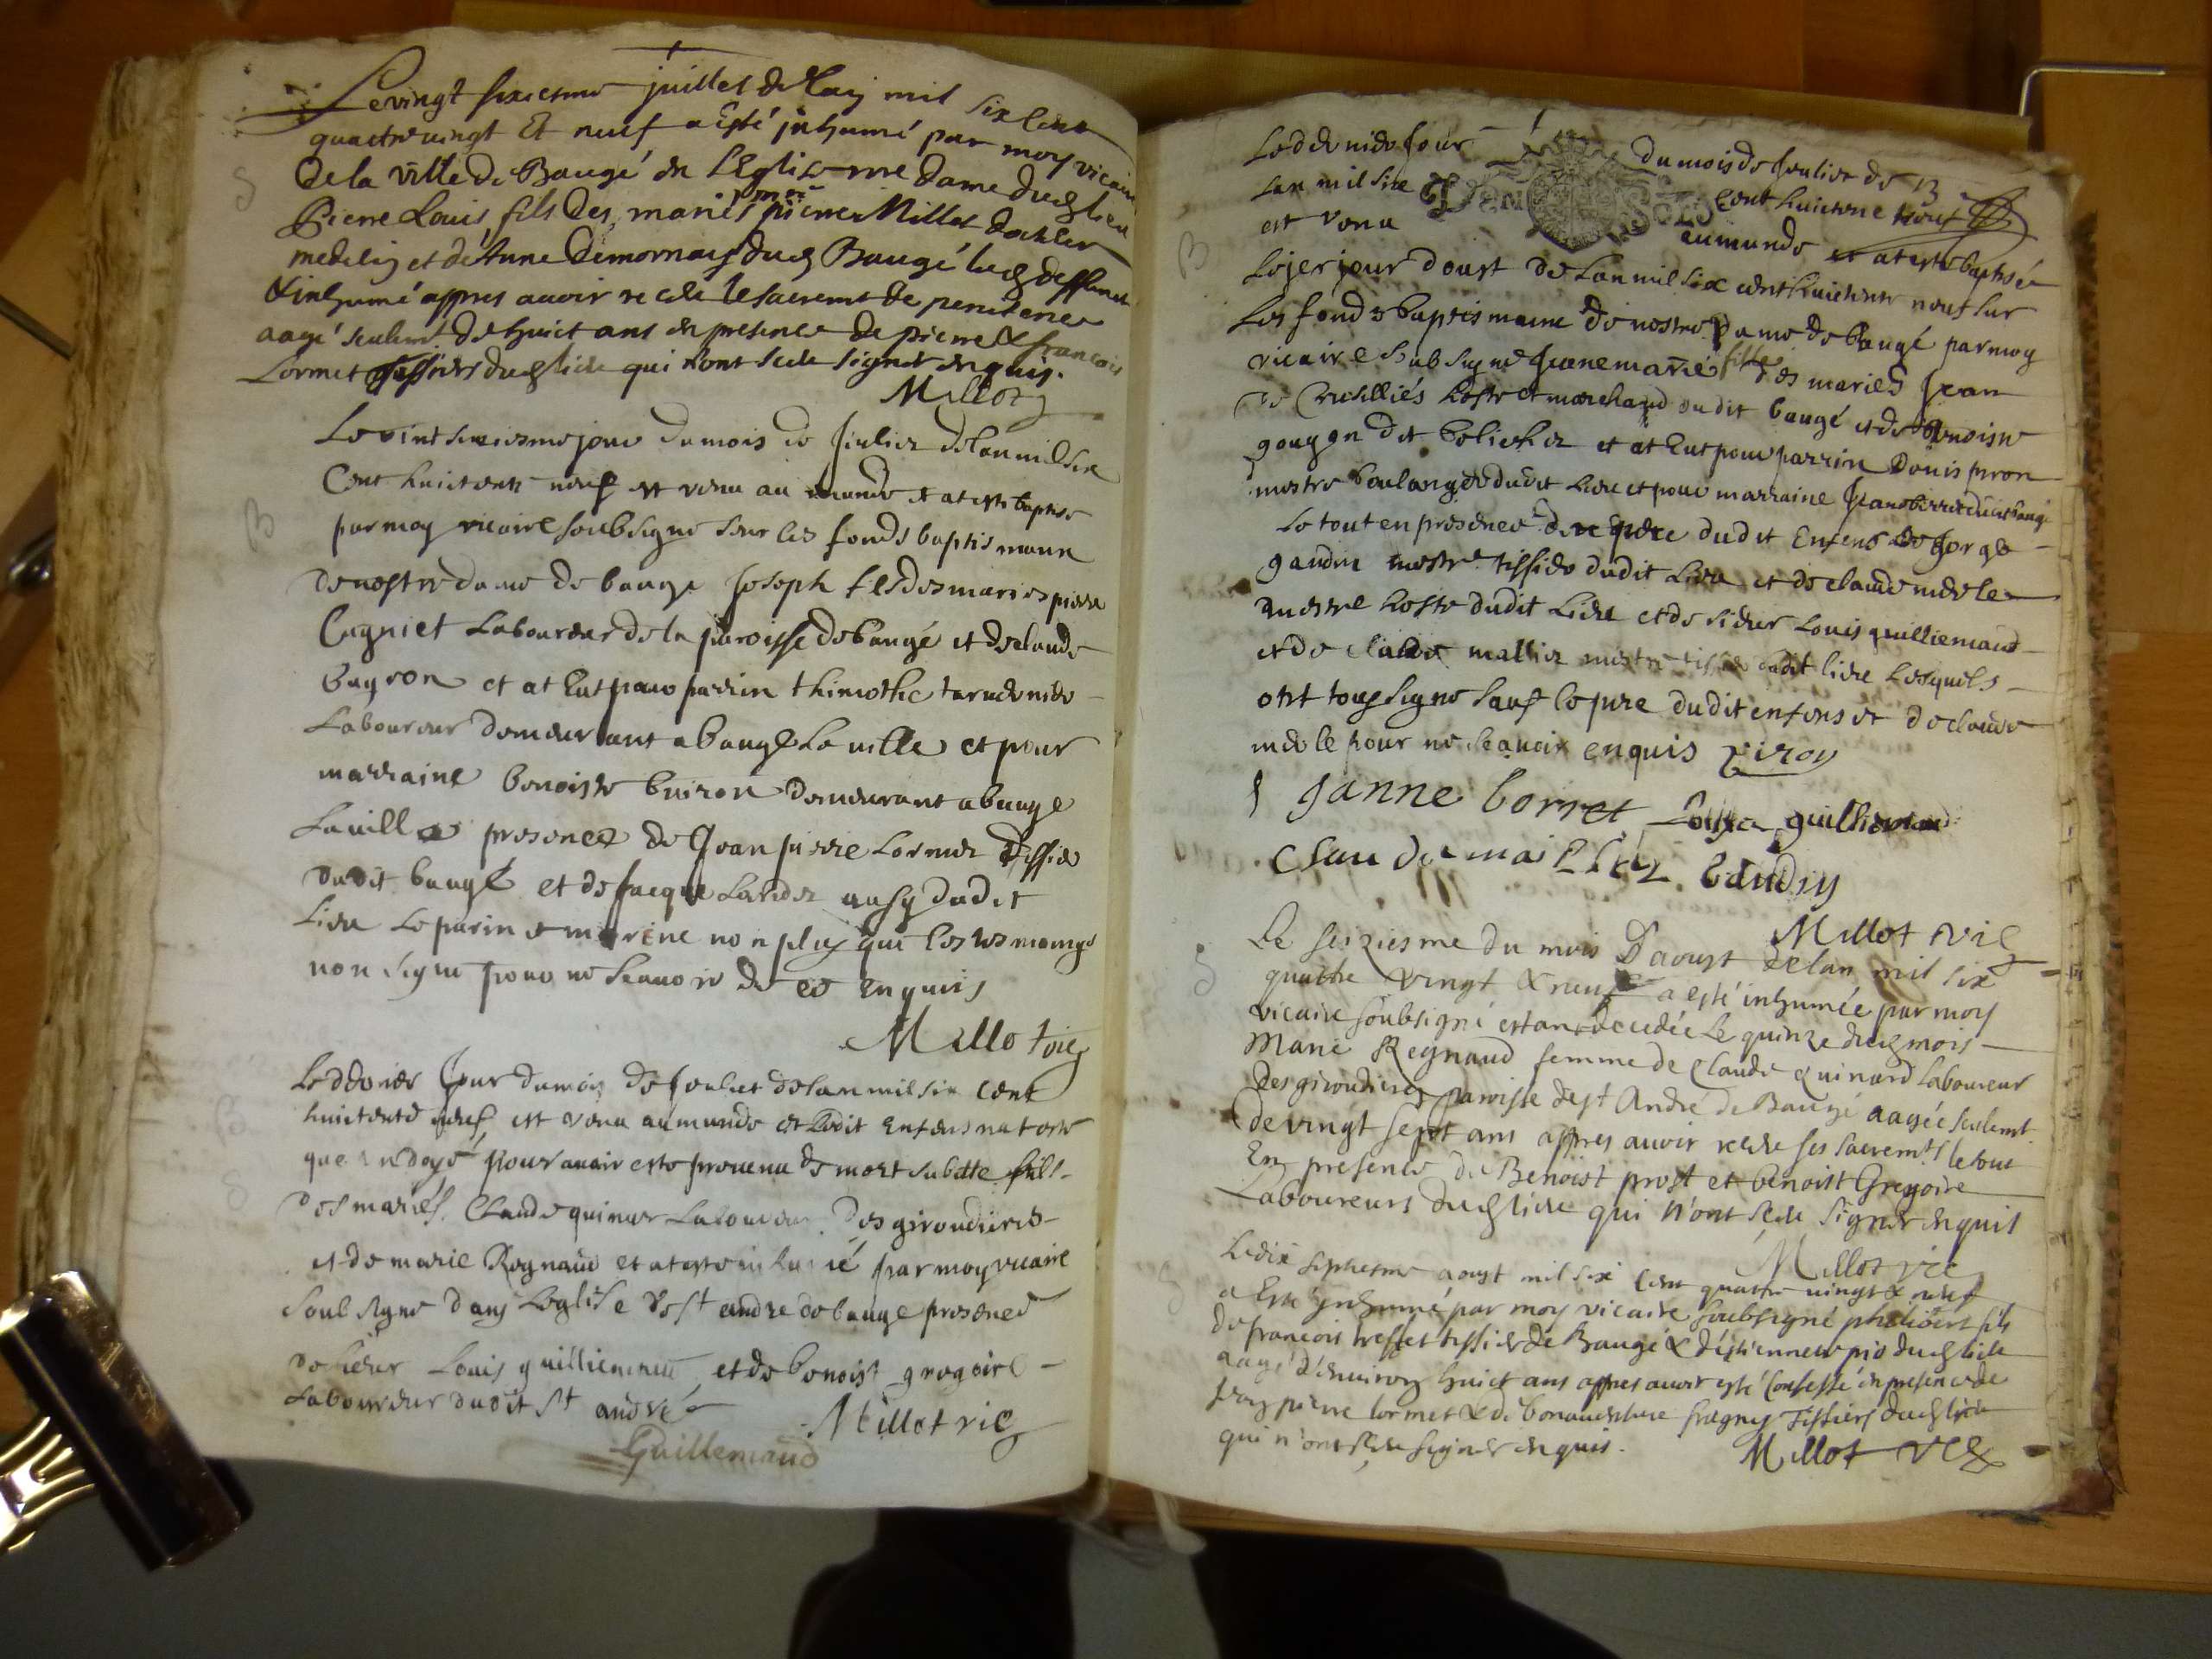 Le vingt sixiesme juillet de l'an mil six cent
quattre vingt Et neuf a Esté inhumé par moy vicaire
de la ville de Baugé en l'Eglise nre dame dud lieu
Pierre Louis fils des mariés pierre Millot docteur
medecin et de Anne Demornay dud Baugé led deffunct
& inhumé appres avoir receu le sacremt de penitence
aagé seulemt de huict ans en presence de pierre & françois
Lormet tissiers dud lieu qui n'ont sceu signer enquis.
Millot
Le vint jour du mois de Juliez de lan mil six
Cent huictente neuf est venu au munde et at este baptise
par moy vicaire soubsigne sur les fonds baptismaux
de nostre dame de bauge Joseph fils des maries piere
Cugniet Laboureur de la paroisse de baugé et de claude
buyron et at Eut pour parrin thimothe
Laboureur demeurant a bauge La ville et pour
marraine benoiste buiron demeurant a bauge
La ville presence de Jean pierre Lormet tissie
dudit baugé et de Jacque ausy dudit
Lieu Le parin et marine non plus que les tesmoings
non signe pour ne scavoir de ce Enquis
Millot vic
Le dernier Jour du mois de Joulliet de lan mil six cent
huictente neuf est venu au munde et ledit Enfens nat este
que ondoyé pour avoir este prevenu de mort subitte fills
des mariés Claude quinar Laboureur des giroudieres
et de marie Regnaud et at este inhumé par moy vicaire
soubsigne dans Leglise de st andre de bauge presence
de sieur Louis guilliemaud et de benoist gregoire
Laboureur dudit st andré
Millot vic
Guillemaud
Le dernier Jour du mois de Joulier de
Lan mil six cent huictente neuf
est venu au munde et at este baptisé
Le jer jour doust de Lan mil six cent huictente neuf sur
Les fonds baptismaux de nostre Dame de baugé par moy
vicaire subsigne Jeane marie fille des mariés Jean
de Cruselliés hoste et marchand dudit baugé et de benoiste
gougon dit et at Eut pour parrin Denis piron
mestre boulanger dudit Lieu et pour marraine Jeane borret dudit baugé
Le tout en presence du pere dudit Enfens de Jorge
gaudin mestre tissier dudit Lieu et de claude
mestre hoste dudit Lieu et de sieur Louis guilliemaud
et de claude mallier mestre tissier dudit lieu Lesquels
ont tous signe sauf le pere dudit enfens et de claude
pour ne scavoir enquis Piron
Janne borret Louys guilliemaud
Claude maillier Gaudin
Millot vic
Le seiziesme du mois D'aoust de lan mil six
quattre vingt & neuf a esté inhumée par moy
vicaire soubsigné estant decedée Le quinze dud mois
Marie Regnaud femme de Claude Quinard Laboureur
des giroudieres paroisse de st André de Baugé aagée seulemt
de vingt sept ans appres avoir receu ses sacremts le tout
En presence de Benoist prost et benoist Gregoire
Laboureurs dud lieu qui n'ont sceu signer enquis
Millot vic
Le dix septiesme aoust mil six cent quattre vingt & neuf
a Esté inhumé par moy vicaire soubsigné philibert fils
de francois tissier de Baugé & d'estiennette pio dud lieu
aagé d'environ huict ans appres avoir esté confessé en presence de
Jean pierre lormet & de bonaventure tissiers dud lieu
qui n'ont sceu signer enquis.
Millot vic